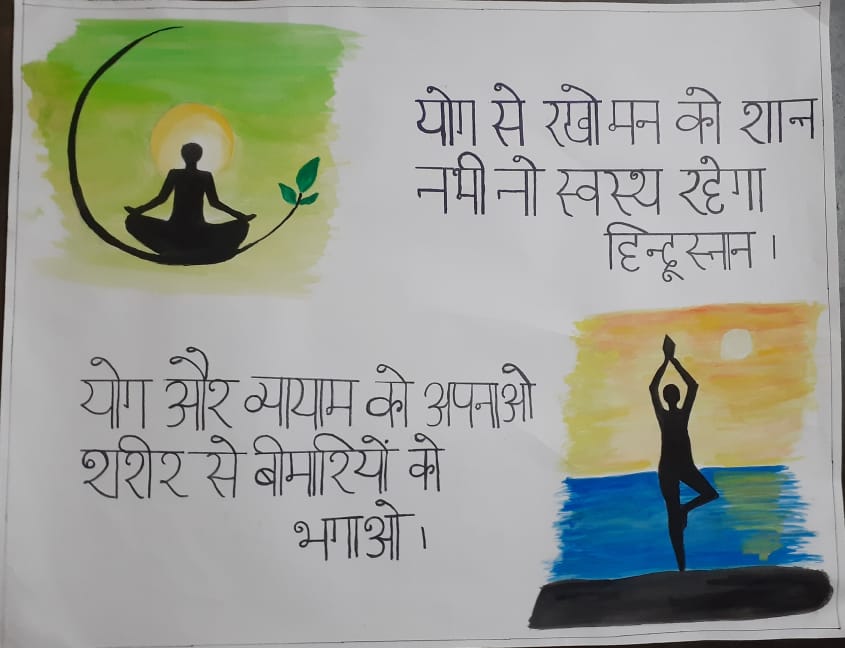 योग से रखो मन को शान्त
तभी तो स्वस्थ रहेगा
हिन्दूस्तान ।
योग और व्यायाम को अपनाओ
शरीर से बीमारियों को
भगाओ ।